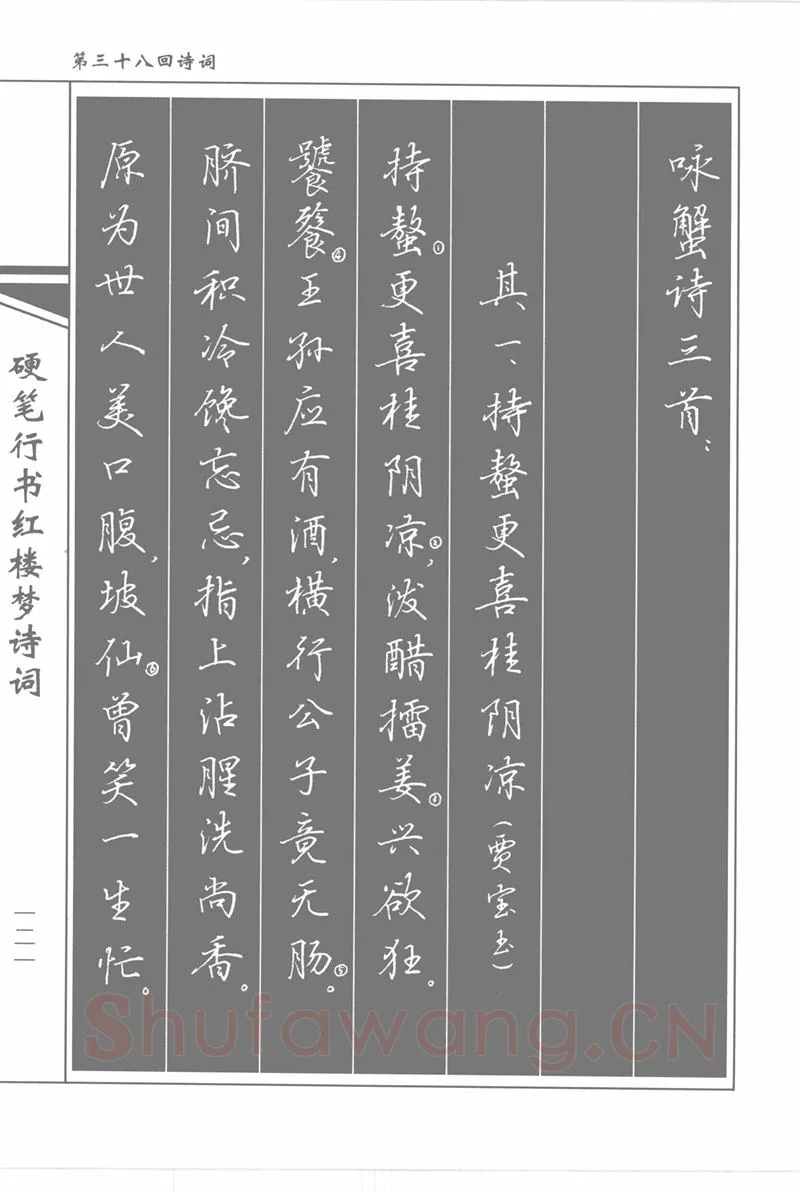 第三十八回诗词
咏蟹诗三首：
其一、持螯更喜桂阴凉（贾宝玉）
持螯①更喜桂阴凉②，泼醋擂姜③兴欲狂。
饕餮④王孙应有酒，横行公子竟无肠⑤。
脐间积冷馋忘忌，指上沾腥洗尚香。
原为世人美口腹，坡仙⑥曾笑一生忙。
硬笔行书红楼梦诗词
一二一
Shufawang.CN